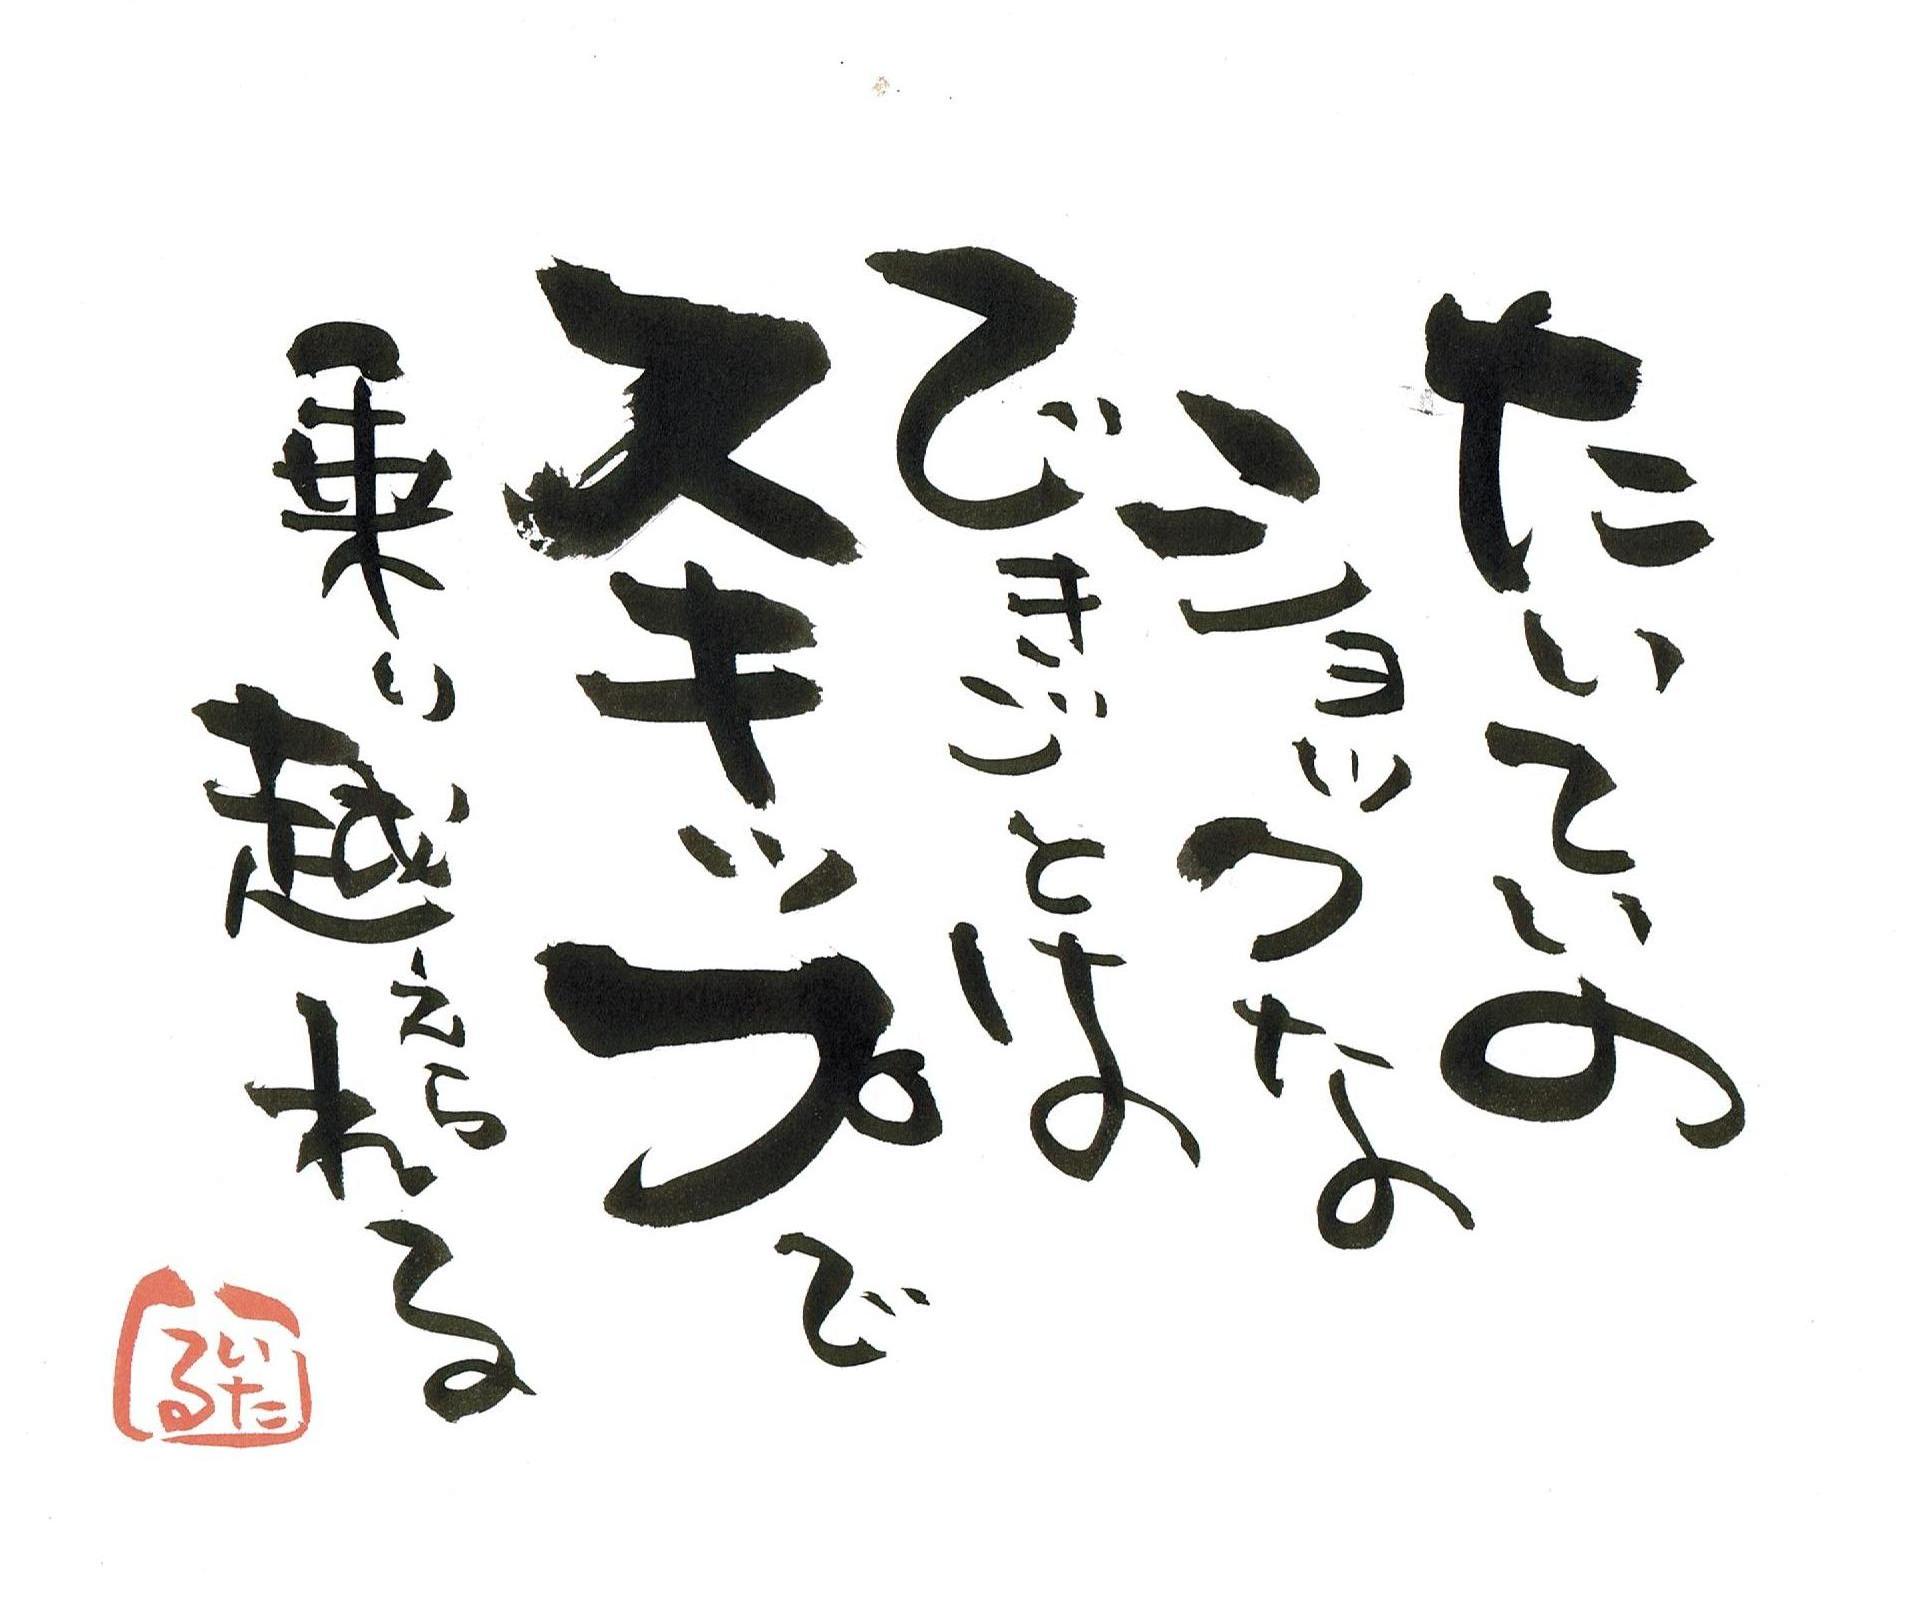 たいていの
ショックな
できごとは
スキップで
乗り越えられる
いた
る